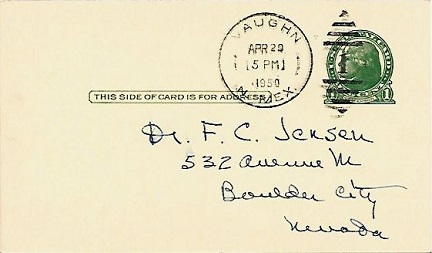 VAUGHN
APR 29
5 PM
1950
N. MEX.
THIS SIDE OF CARD IS FOR ADDRESS
1 1
Dr. F. C. Jensen
532 Avenue M
Boulder City
Nevada